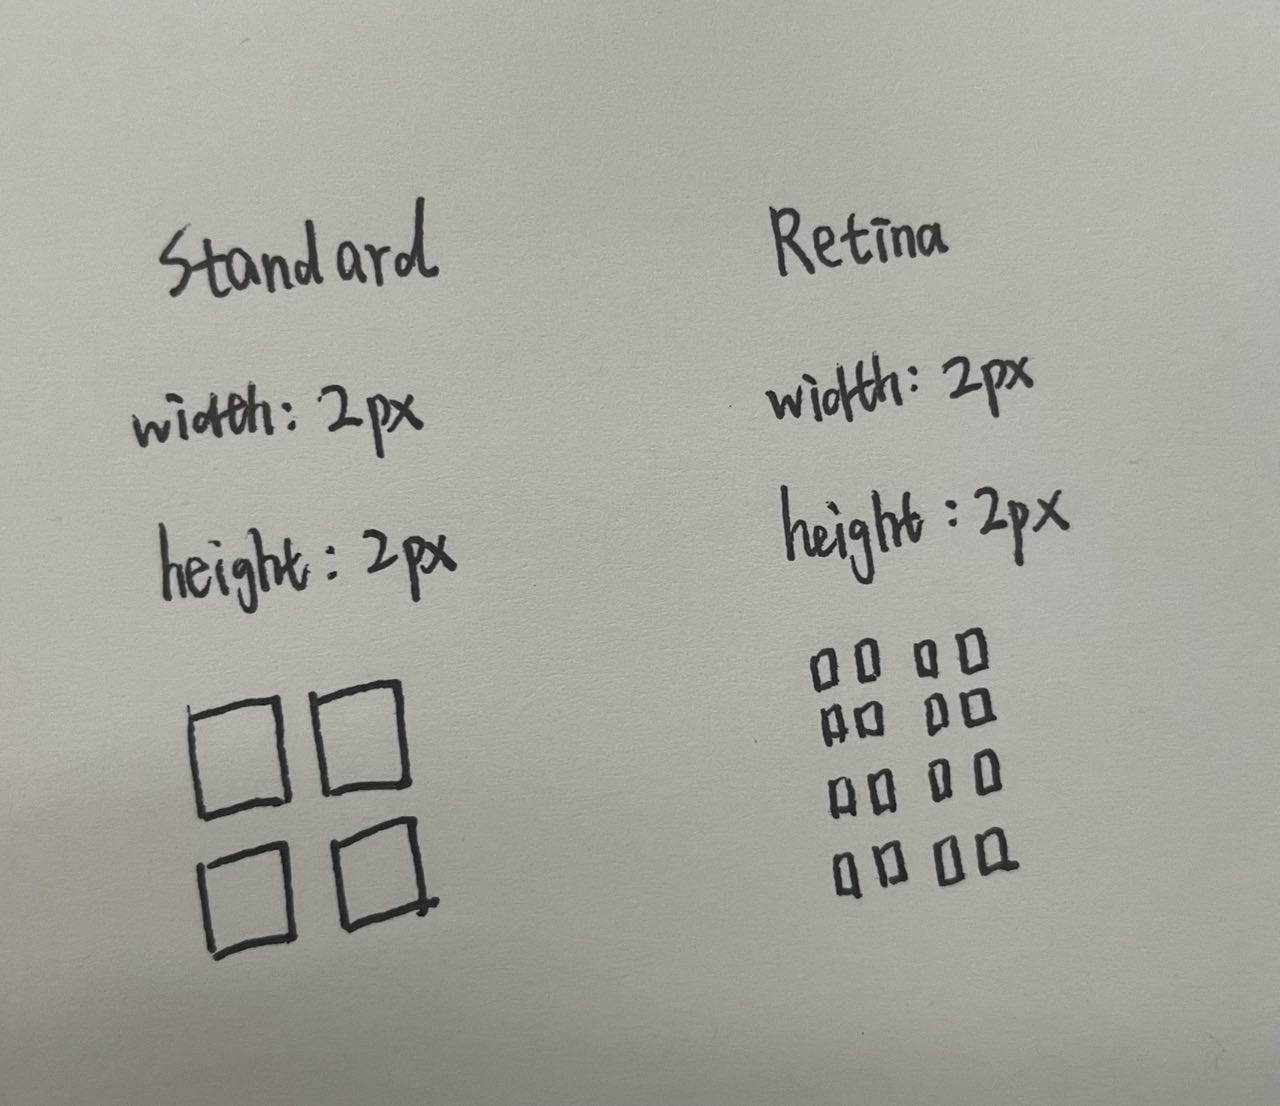 Standard
width: 2px
height: 2px
Retina
width: 2px
height: 2px